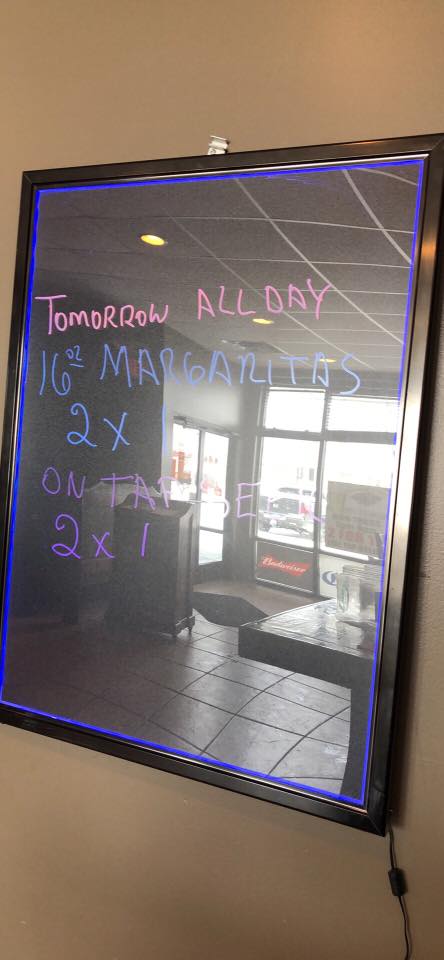 TOMORROW ALL DAY
16oz MARGARITAS
2 x 1
ON TAP BEER
2 x 1
Budweiser